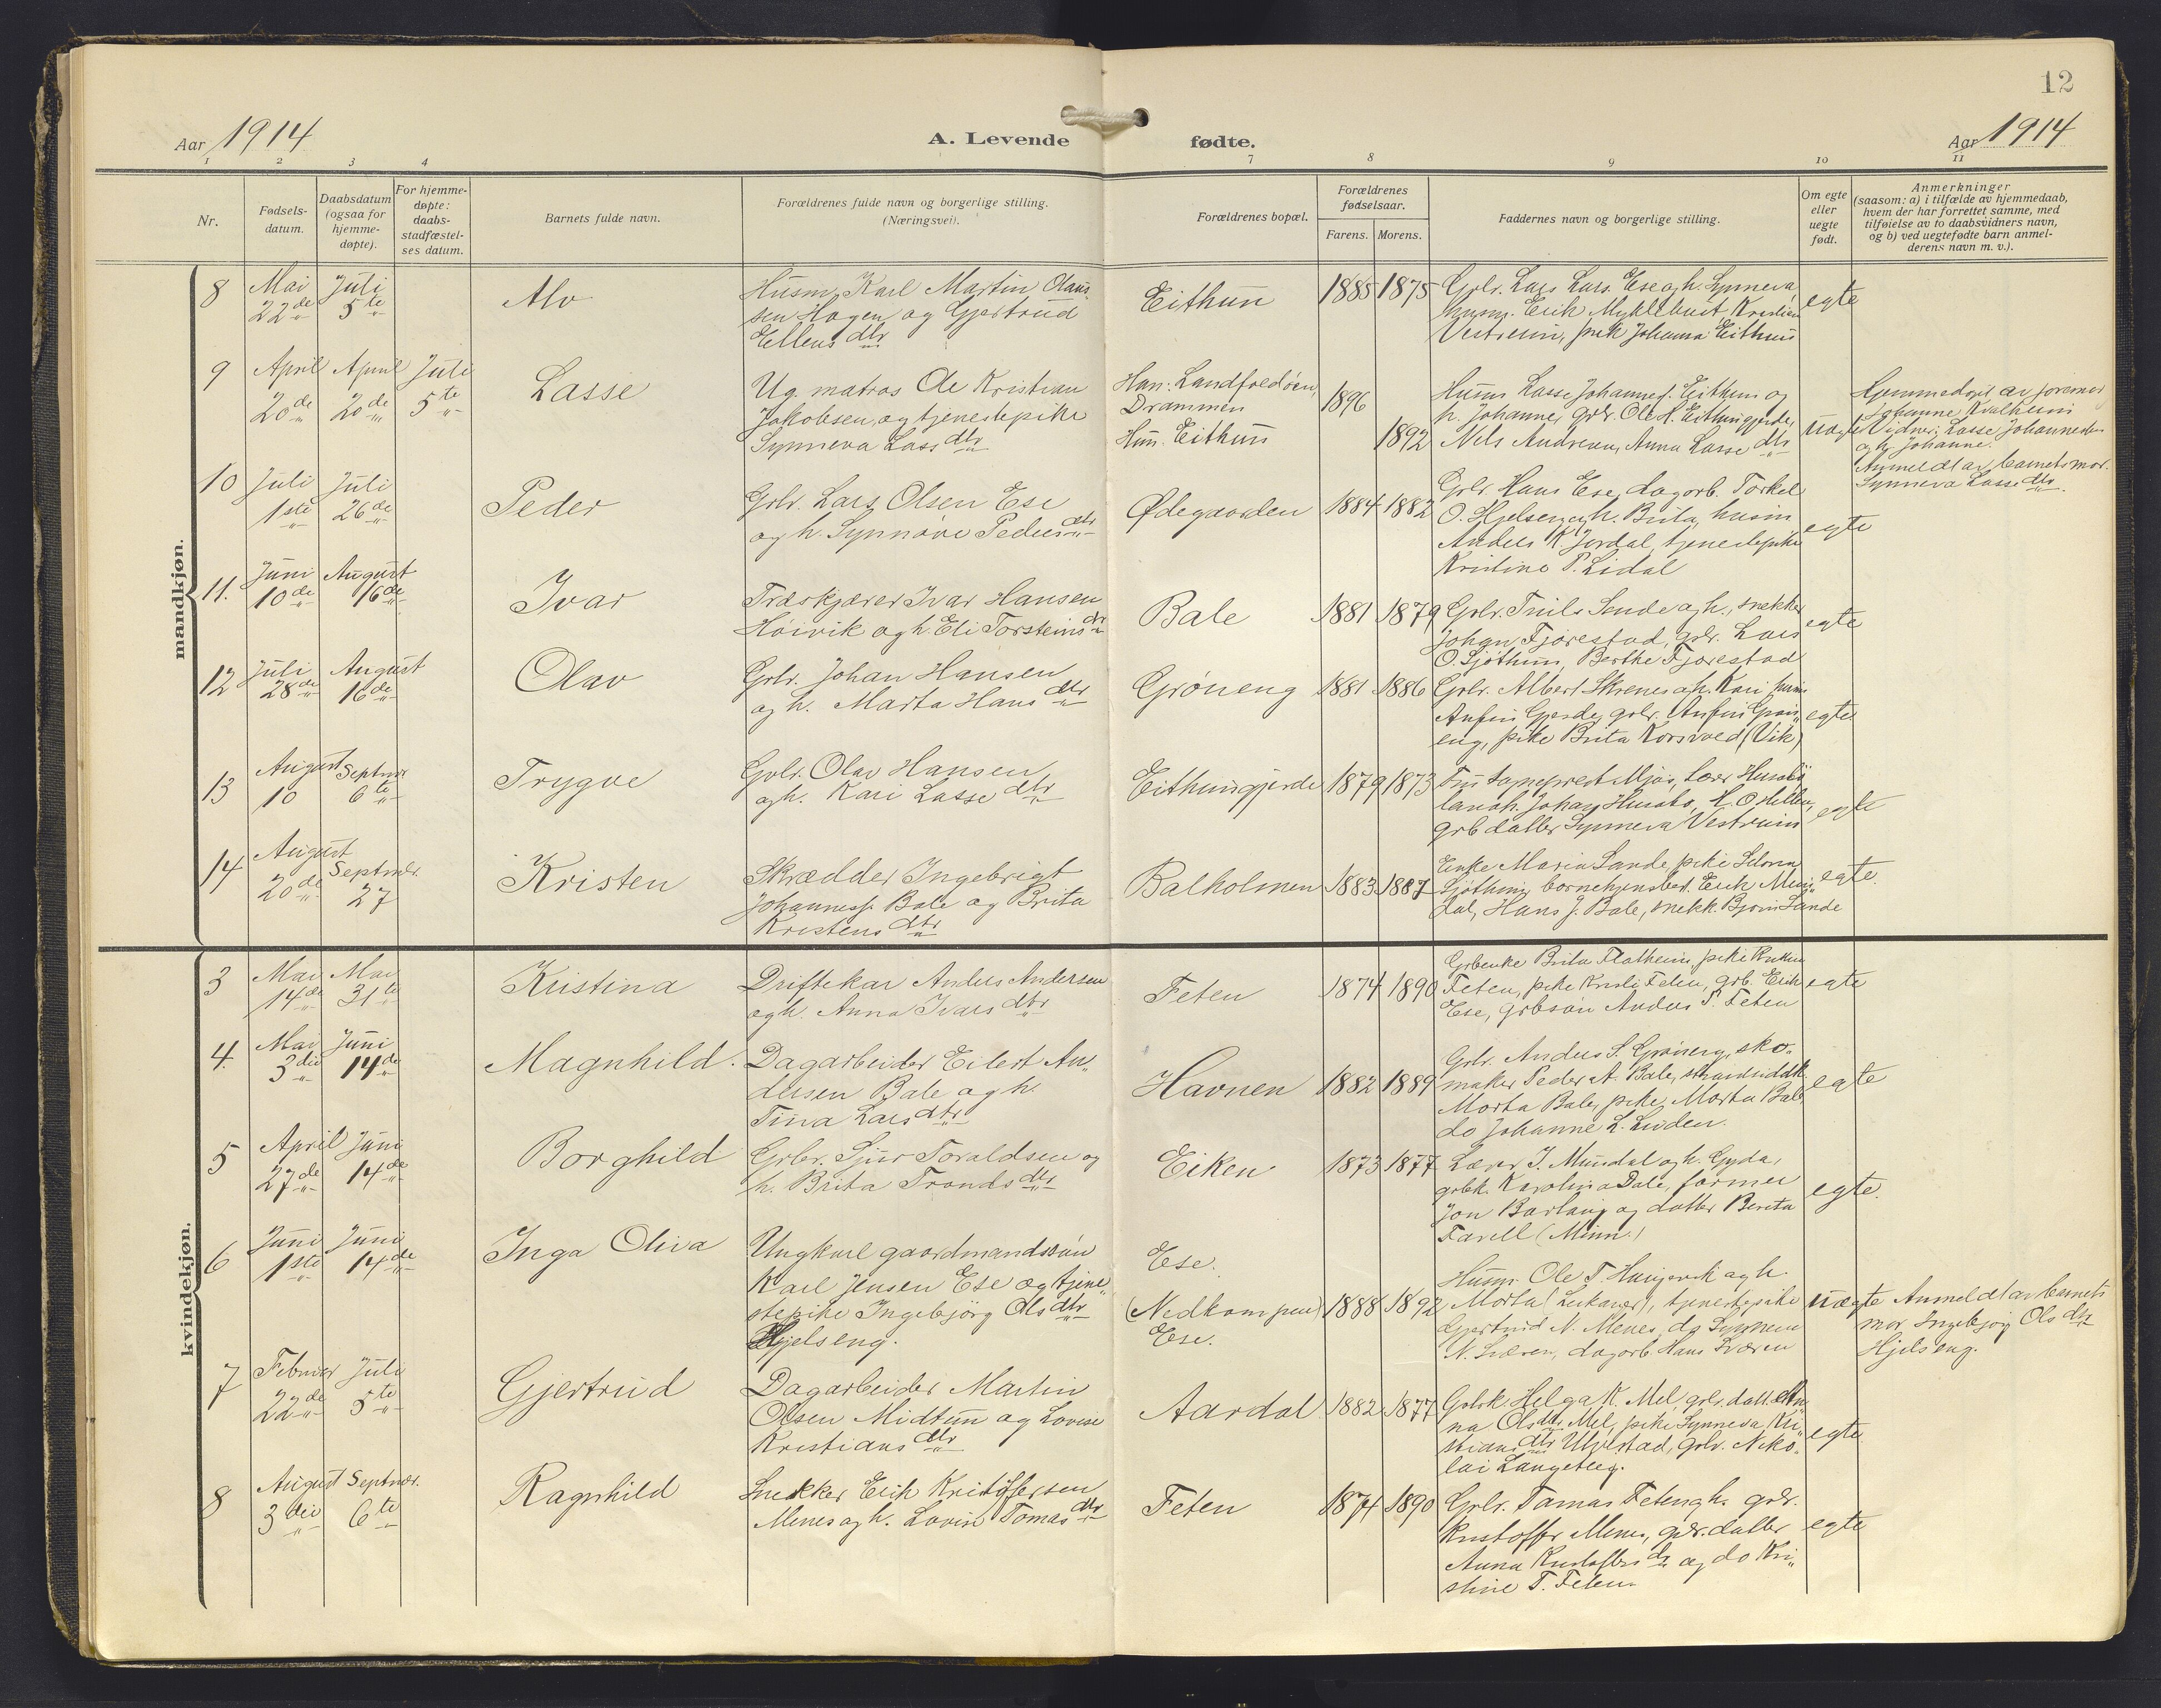 12
Aar 1914
A. Levende fødte.
Aar 1914
1 2 3 4 7 8 9 10 11
Nr.
Fødsels-
datum.
Daabsdatum
(ogsaa for
hjemme-
døpte).
For hjemme-
døpte:
daabs-
stadfæstel-
ses datum.
Barnets fulde navn.
Forældrenes fulde navn og borgerlige stilling.
(Næringsvei).
Forældrenes bopæl.
Forældrenes
fødselsaar.
Farens. Morens.
Faddernes navn og borgerlige stilling.
Om egte
eller
uegte
født.
Anmerkninger
(saasom: a) i tilfælde av hjemmedaab,
hvem der har forrettet samme, med
tilføielse av to daabsvidners navn,
og b) ved uegtefødte barn anmel-
derens navn m. v.).
mandkjøn.
8
Mai
22de
Juli
5te
Alv
Husm. Karl Martin Olaus-
sen Hagen og Gjertrud
Ellens dtr
Eithun
1885 1875
Grbr. Lars Lars. Ese og h. Synneva,
husm. Erik Myklebust, Kristian
Vestreim, pike Johanna Eithun
egte
9
April
20de
April
20de
Juli
5te
Lasse
Ug. matros Ole Kristian
Jakobsen, og tjenestepike
Synneva Lass dtr
Han: Landfaldøen,
Drammen
Hun: Eithun
1896
1892
Husm Lasse Johanness. Eithun og
h. Johanne, grbr. Ole H. Eithungjerde,
Nils Andreas, Anna Lasse dtr
uegte
Hjemmedøpt av jordmor
Johanne Kvalheim
Vidner: Lasse Johannessen
og h. Johanne.
Anmeldt av barnets mor
Synneva Lasse dtr.
10
Juli
1ste
Juli
26de
Peder
Grbr. Lars Olsen Ese
og h. Synnøve Peders dtr
Ødegaarden
1884 1882
Grbr. Hans Ese, dagarb. Torkel
O. Hjelseng og h. Brita, husm.
Anders K. Jordal, tjenestepike
Kristine P. Lidal
egte
11.
Juni
10de
August
16de
Ivar
Træskjærer Ivar Hansen
Høivik og h. Eli Torsteins dtr
Bale
1881 1879
Grbr. Sende og h., snekker
Johan Fjørestad, grbr. Lars
O. Sjøthun, Berthe Fjørestad
egte
12
Juli
28de
August
16de
Olav
Grbr. Johan Hansen
og h. Marta Hans dtr
Grøneng
1881 1886
Grbr. Albert Skrenes og h. Kari, husm
Anfin Gjerde, grbr. Anfin Grøn-
eng, pike Brita Korsved (Vik)
egte
13
August
10
Septmr
6te
Trygve
Grbr. Olav Hansen
og h. Kari Lasse dtr
Eithungjerde
1879 1873
Fru Sogneprest Mjøs, Lærer Husabø
Johan Husabø, H. O.
grb datter Synneva Vestreim
egte
14
August
20de
Septmbr.
27
Kristen
Skrædder Ingebrigt
Johanness. Bale og Brita
Kristens dtr
Balholmen
1883 1887
Enke Maria Sande, pike
Sjøthun, Erik Mun-
dal, Hans J. Bale, snekk. Bjørn Sande
egte.
kvindekjøn.
3
Mai
14de
Mai
31te
Kristina
Driftekar Anders Andersen
og h. Anna Ivars dtr
Feten
1874 1890
Grbenke Brita Flatheim, pike
Feten, pike Kristi Feten, grb. Erik
Ese, grbsøn Anders P. Feten
egte
4.
Mai
3die
Juni
14de
Magnhild.
Dagarbeider Eilert An-
dersen Bale og h.
Tina Lars dtr
Havnen
1882 1889
Grbr. Anders S. Grøneng, sko-
maker Peder A. Bale,
Marta Bale, pike Marta Bale
do Johanne L. Linden.
egte
5
April
27de
Juni
14de
Borghild
Grbr. Sjur Toraldsen og
h. Brita Tronds dtr
Eiken
1873 1877
Lærer J. Mundal og h. Gyda,
grbk. Karolina Dale, farmer
Jon Barlaug og datter Berita
Farell (Minn.)
egte.
6
Juni
1ste
Juni
14de
Inga Oliva
Ungkarl gaardmandssøn
Karl Jensen Ese og tjene-
stepike Ingebjørg Ols dtr
Hjelseng.
Ese.
(Nedkom paa)
Ese.
1888 1892
Husm. Ole T. og h.
Marta (Leikanger), tjenestepike
Gjertrud N. Menes, do Synneva
N. Sværen, dagarb. Hans Sværen
uegte
Anmeldt av barnets
mor Ingebjørg Ols dtr
Hjelseng.
7
Februar
22de
Juli
5te
Gjertrud
Dagarbeider Martin
Olsen Midtun og Lovise
Kristians dtr
Aardal
1882 1877
Grbrk. Helga K. Mel, grbr. datt. An-
na Ols dtr Mel, pike Synneva Kri-
stians dtr Ulvestad, grbr. Niko-
lai Langeteig.
egte
8
August
3die
Septmbr.
6te
Ragnhild
Snekker Erik Kristoffersen
Menes og h. Lovise Tomas dtr
Feten
1874 1890
Grbr. Tomas Feten og h. grbr.
Kristoffer Menes, grbr. datter
Anna Kristoffers dr og do Kri-
stine T. Feten
egte